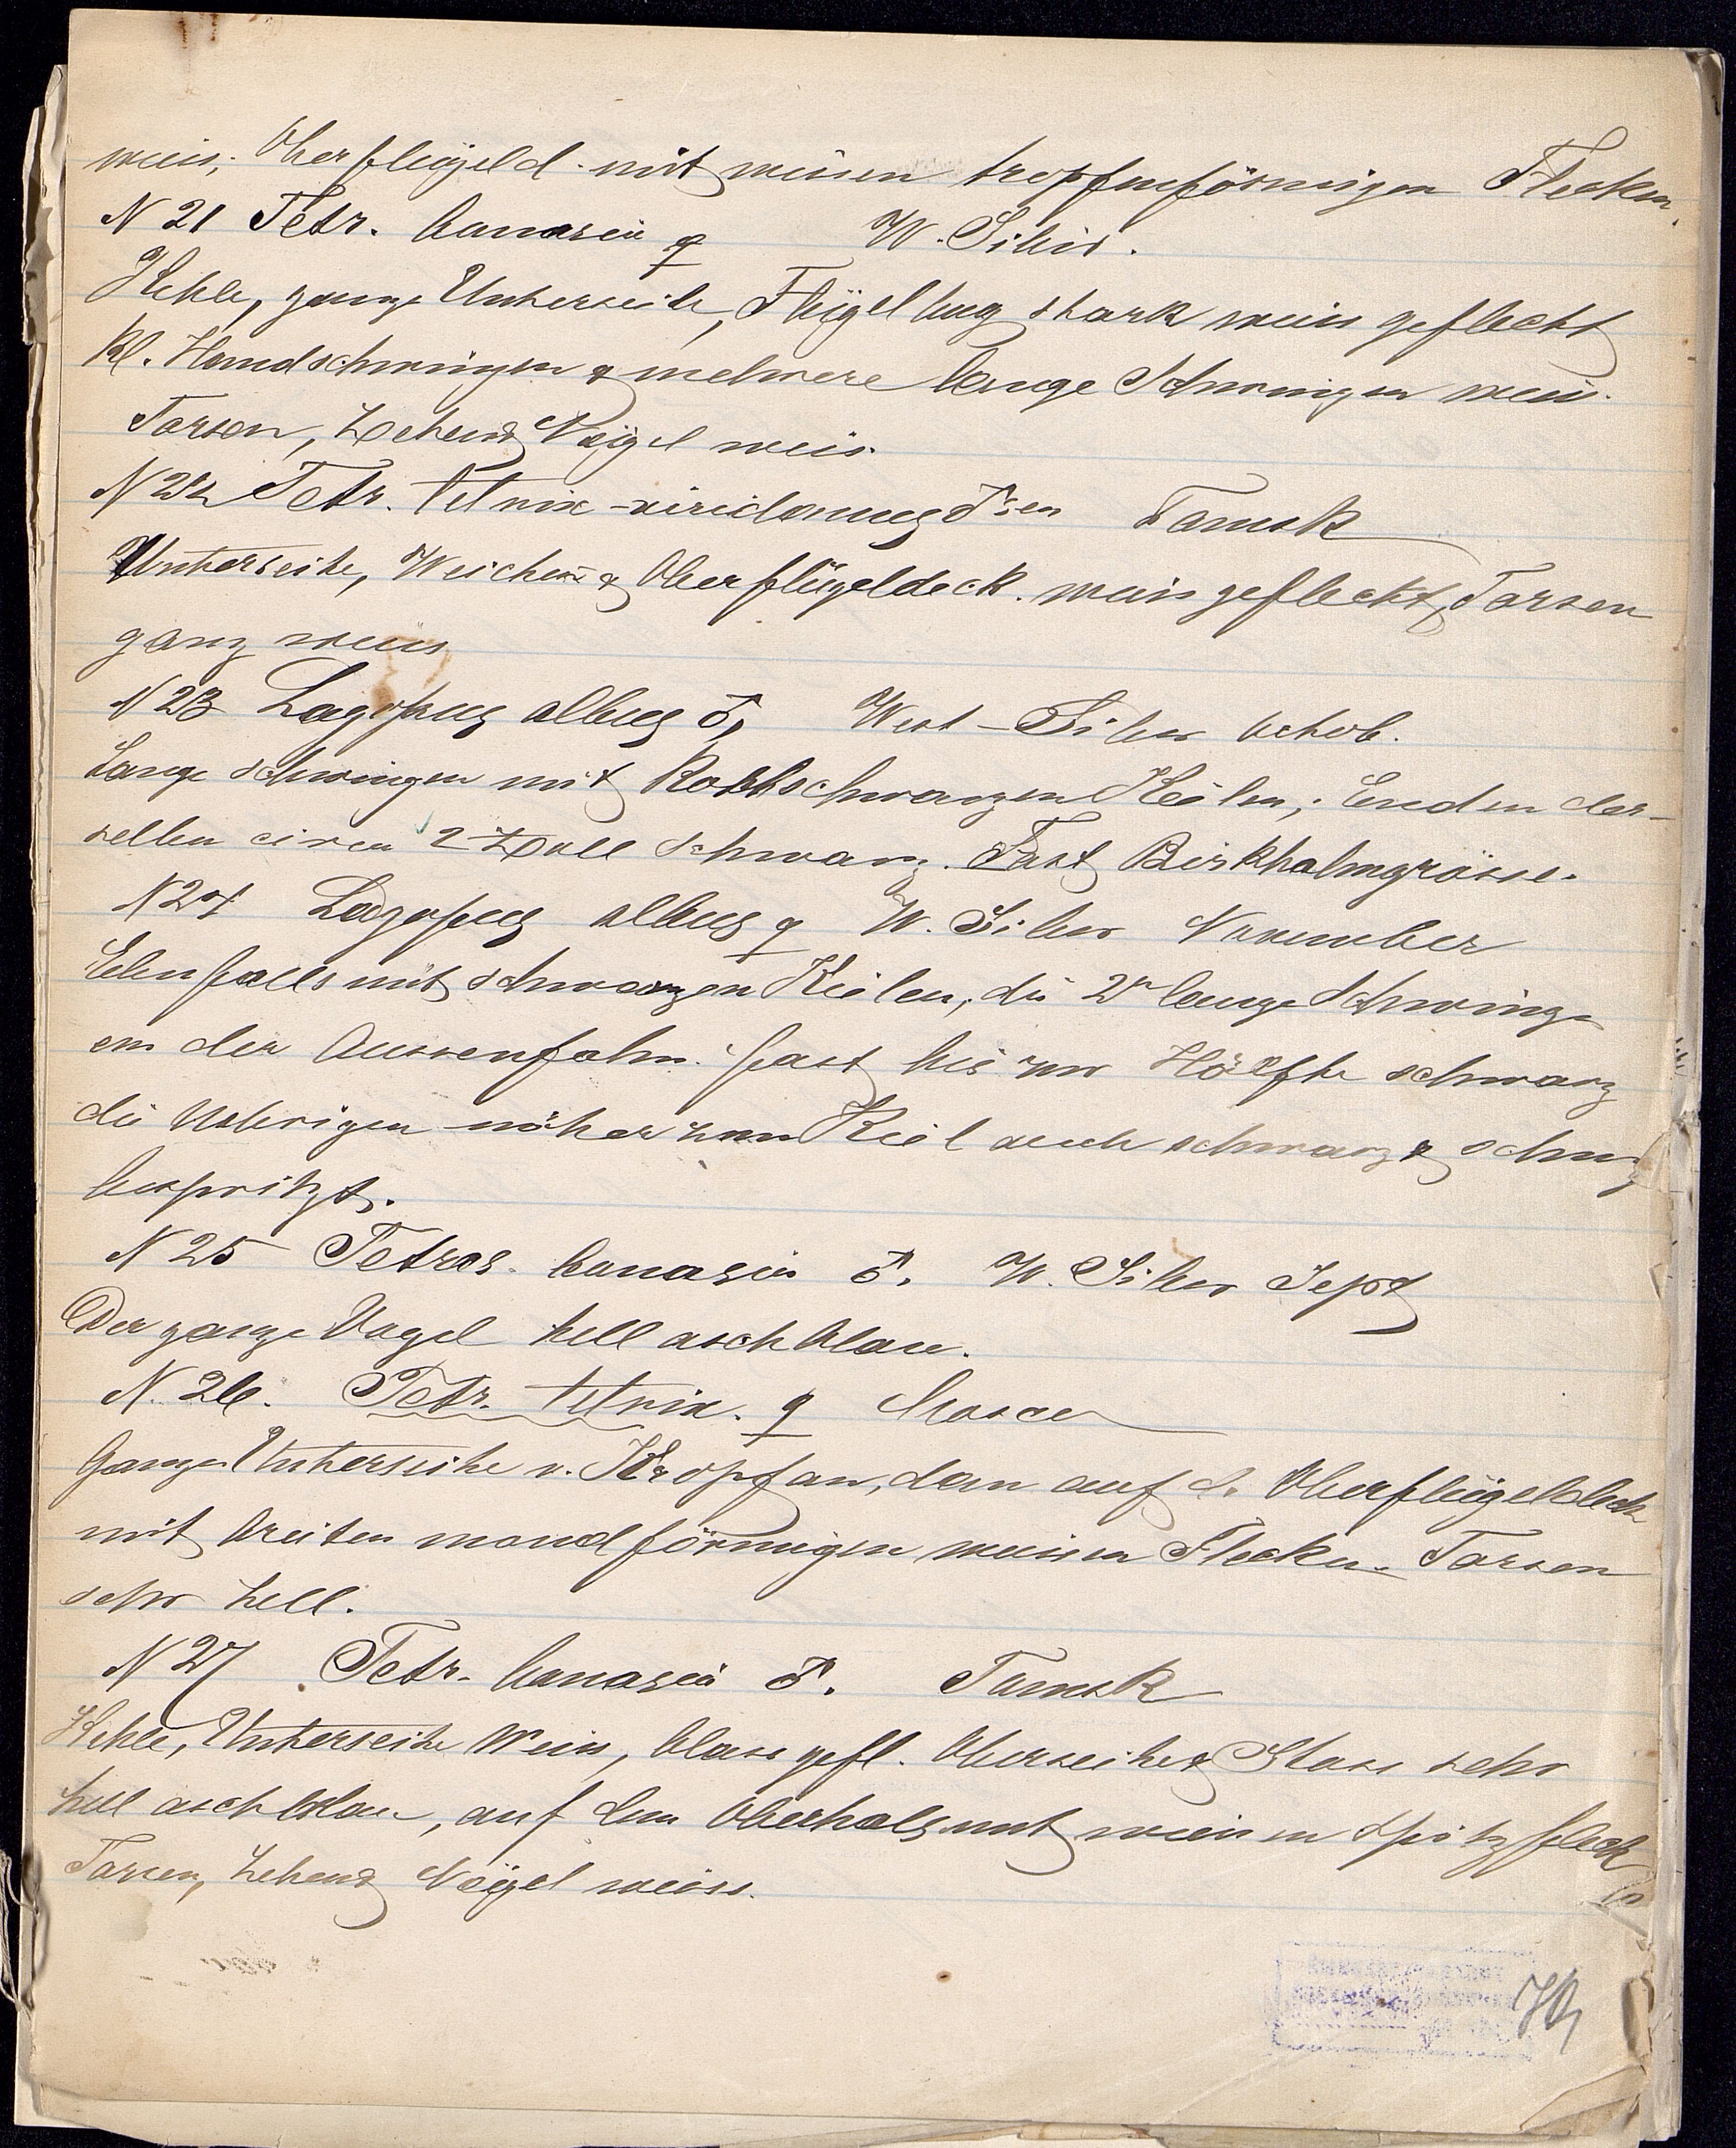 weis, Oberflügeld. mit weisen tropfenförmigen Flecken.
N 21 Tetr. bonasia ♀ W. Sibir.
Kehle, ganze Unterseite, Flügelbug stark weis gefleckt
Kl. Handschwingen & mehrere lange Schwingen weis.
Tarsen, Zehen & Nägel weis.
N 22 Tetr. tetrix-viridanus ♂ Tomsk
Unterseite, Weichen & Oberflügeldeck. weis gefleckt, Tarsen
ganz weis
N 23 Lagopus albus ♂, West-Sibir Octob.
Lange Schwingen mit Kohlschwarzen Kielen; Enden der-
selben circa 2 Zoll schwarz. Fast Birkhahngrösse.
N 24 Lagopus albus ♀ W. Sibir November
Ebenfalls mit schwarzen Kielen, die 2te lange Schwinge
an der Aussenfahn. fast bis zur Hälfte schwarz
die Uebrigen näher zum Kiel auch schwarz &
bespritzt.
N 25 Tetras. bonasia ♂. W. Sibir Sept
Der ganze Vogel hell aschblau.
N. 26. Tetr. tetrix. ♀
Ganze Unterseite v. Kropf an, dan auf d. Oberflügeldeck
mit breiten mondförmigen weisen Flecken. Tarsen
sehr hell.
N 27 Tetr. bonasia ♂. Tomsk
Kehle, Unterseite Weis, blass gefl. Oberseite & Stoss sehr
hell aschblau, auf dem Oberhals mit weisen Spitzfleck
Tarsen, Zehen & Nägel weiss.